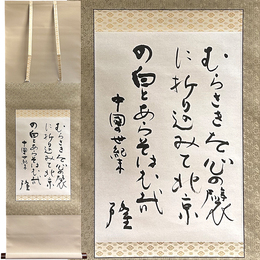 むらさきを心の襞
に折り込みて北京
の白とあらそはむ哉
中國世紀末
隆